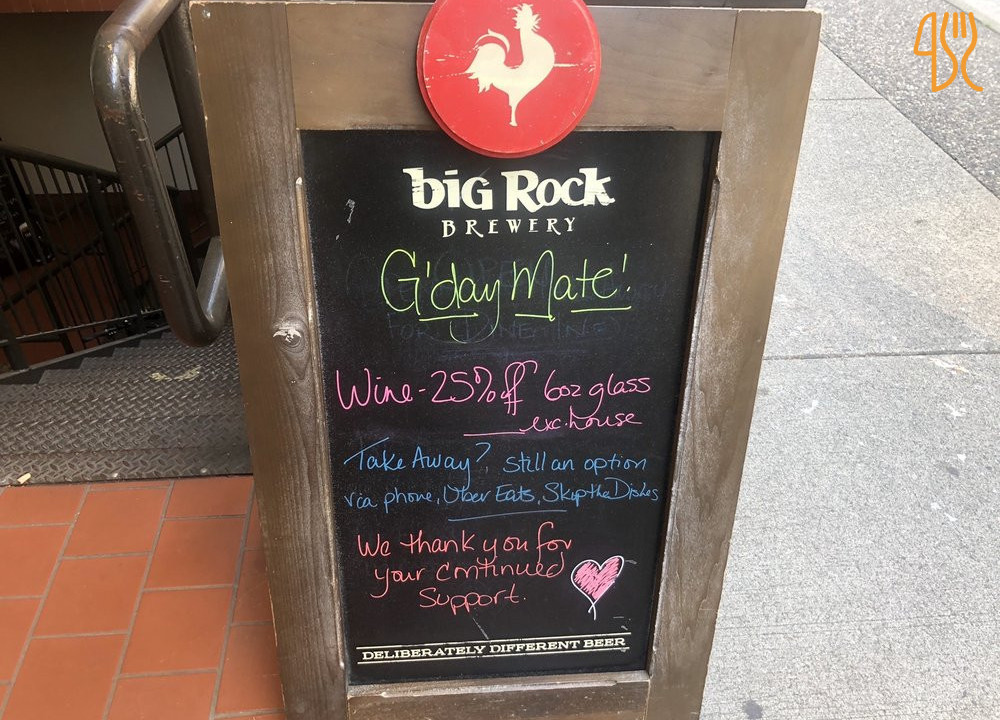 big Rock
BREWERY
G'day Mate!
FOR DINE-IN
Wine - 25% off 6oz glass
exc. house
Take Away? still an option
via phone, Uber Eats, Skip the Dishes
We thank you for
your continued
support.
DELIBERATELY DIFFERENT BEER